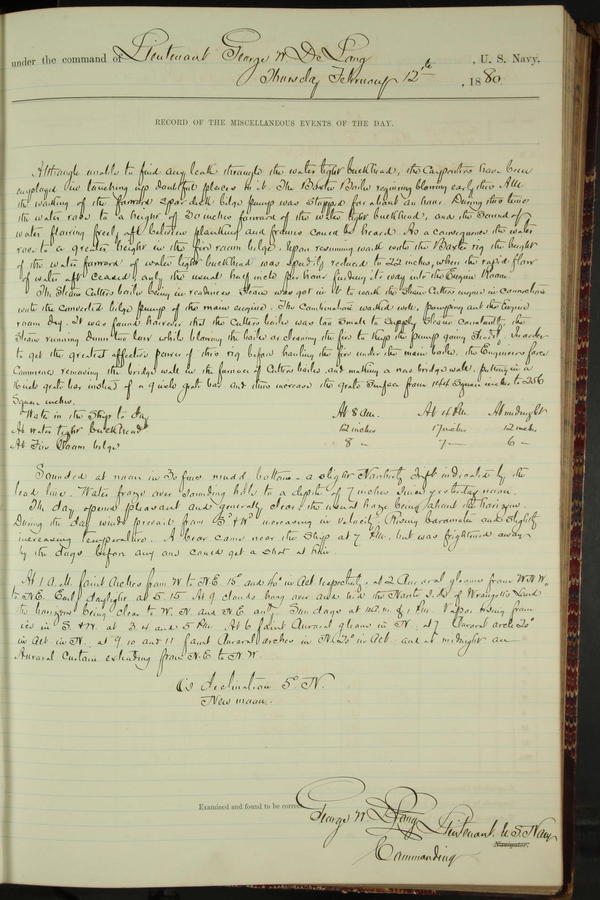 under the command of Lieutenant George W De Long, U. S. Navy,
Thursday February 12th, 1880
RECORD OF THE MISCELLANEOUS EVENTS OF THE DAY.
Although unable to find any leak through the water tight bulkhead, the Carpenters have been
employed in caulking up doubtful places in it. The Baxter Boiler requiring blowing early this A.M.
the working of the forward spar deck bilge pump was stopped for about an hour. During this time
the water rose to a height of 30 inches forward of the water tight bulkhead, and the sound of
water flowing freely aft between planking and frames could be heard. As a consequence the water
rose to a greater height in the fire room bilge. Upon resuming work with the Baxter rig the height
of the water forward of water tight bulkhead was speedily reduced to 22 inches, when the rapid flow
of water aft ceased, only the usual half inch per hour finding its way into the Engine Room.
The Steam Cutters boiler being in readiness Steam was got in it to work the Steam Cutters engine in connection
with the converted bilge pump of the main engine. The Combination worked well, pumping out the Engine
room dry. It was found however that the Cutters boiler was too small to supply steam constantly, the
Steam running down too low while blowing the boiler or cleaning the fire to keep the pump going. In order
to get the greatest effective power of this rig before hauling the fire under the main boiler, the Engineers force
Commence removing the bridge wall in the furnace of Cutters boiler, and making a new bridge wall, putting in a
wide grate bar instead of a grate bar and thus increase the grate surface from 144 square inches to 256
square inches.
Water in the Ship to day At 8 am. At 4 P.M. At midnight
At Water tight bulkhead 12 inches 17 inches 12 inches
At Fire Room bilge 8 " 7 " 6 "
Sounded at noon in 30 fms mudd bottom - a slight Northerly drift indicated by the
lead line. Water froze over sounding hole to a depth of 7 inches since yesterday noon.
The day opened pleasant and generally clear the usual haze being about the horizon.
During the day winds prevail from S & W increasing in velocity, Rising barometer and slightly
increasing temperature. A bear came near the Ship at 7 P.M. but was frightened away
by the dogs before any one could get a shot at him.
At 1 A.M. faint Arches from W to N.E. 15° and 40° in Alt respectively, at 2 Auroral gleams from W.N.W.
to N.E. Early daylight at 5.15. At 9 clouds hang over and hid the North side of Wrangels Land
the horizon being clear to W. N. and N.E. and Sun dogs at & 1 P.M. Vapor rising from
ice in S. & W at 3. 4 and 5 P.M. At 6 faint Auroral gleams in N. at 7 Auroral arch 20°
in Alt in N. at 9 10 and 11 faint Auroral arches in N. 20° in Alt. and at midnight an
Auroral Curtain extending from N.E. to N.W.
Declination 5° N.
New moon.
Examined and found to be correct
George W De Long Lieutenant U. S. Navy
Navigator.
Commanding